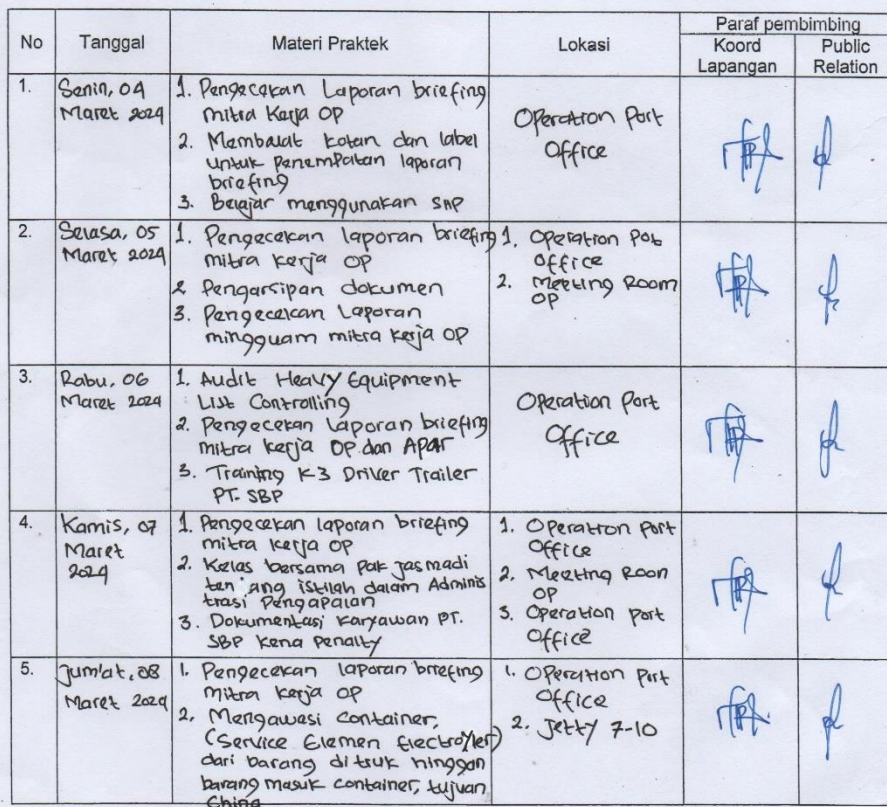 No
Tanggal
Materi Praktek
Lokasi
Paraf pembimbing
Koord
Lapangan
Public
Relation
1.
Senin, 04
Maret 2024
1. Pengecekan Laporan briefing
mitra Kerja OP
2. Membuat kotan dan label
untuk penempatan laporan
briefing
3. Belajar menggunakan SAP
Operation Port
Office
2.
Selasa, 05
Maret 2024
1. Pengecekan laporan briefing
mitra kerja OP
2 Pengarsipan dokumen
3. Pengecekan Laporan
mingguam mitra kerja OP
1. Operation Pob
office
2. Meeting Room
OP
3.
Rabu, 06
Maret 2024
1. Audit Heavy Equipment
List Controlling
2. Pengecekan laporan briefing
mitra kerja OP dan Apar
3. Training K3 Driver Trailer
PT. SBP
Operation Port
Office
4.
Kamis, 07
Maret
2024
1. Pengecekan laporan briefing
mitra kerja OP
2. Kelas bersama Pak Jasmadi
tentang istilah dalam Adminis
trasi Pengapalan
3. Dokumentasi karyawan PT.
SBP kena Penalty
1. Operation Port
Office
2. Meeting Room
OP
3. Operation Port
Office
5.
Jum'at, 08
Maret 2024
1. Pengecekan laporan briefing
mitra kerja OP
2. Mengawasi container,
(Service Elemen Electrolyzer)
dari barang ditruk hinggan
barang masuk container, tujuan
China
1. Operation Port
Office
2. Jetty 7-10